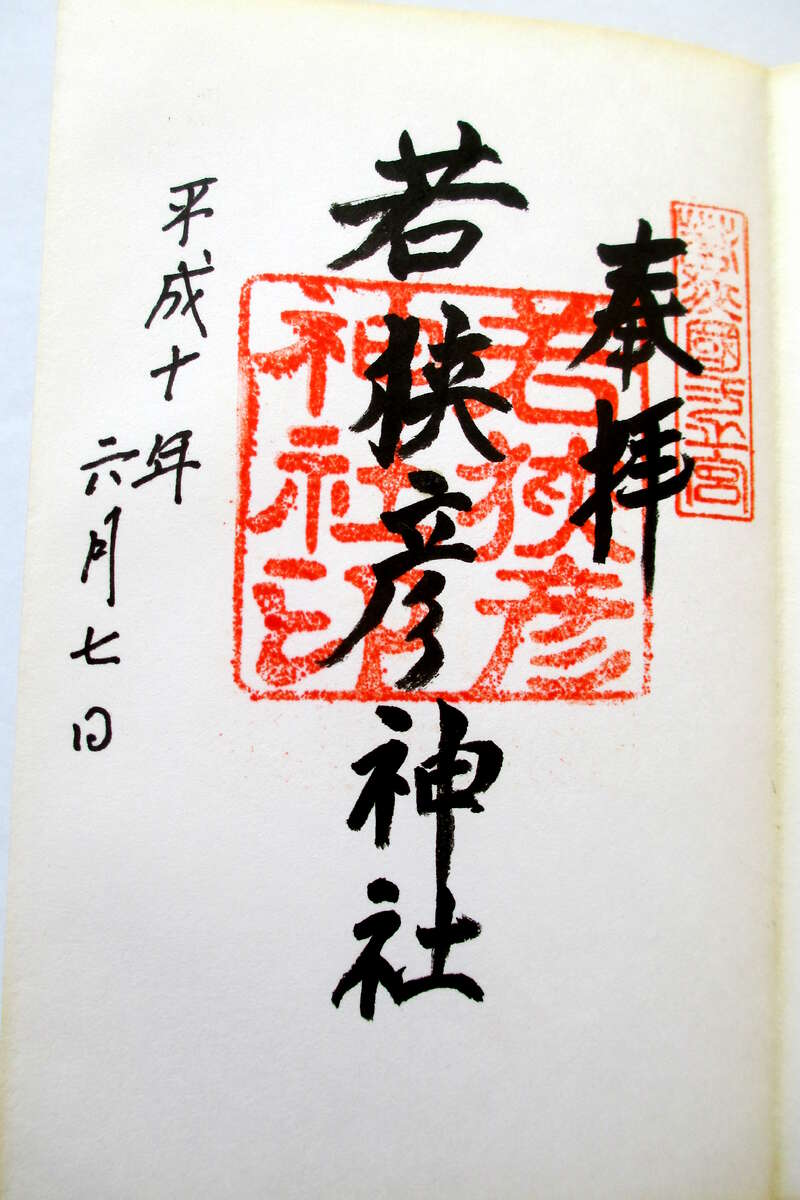 若狭國一宮
奉拝
若狭彦神社
若狭彦
神社印
平成十年
六月七日